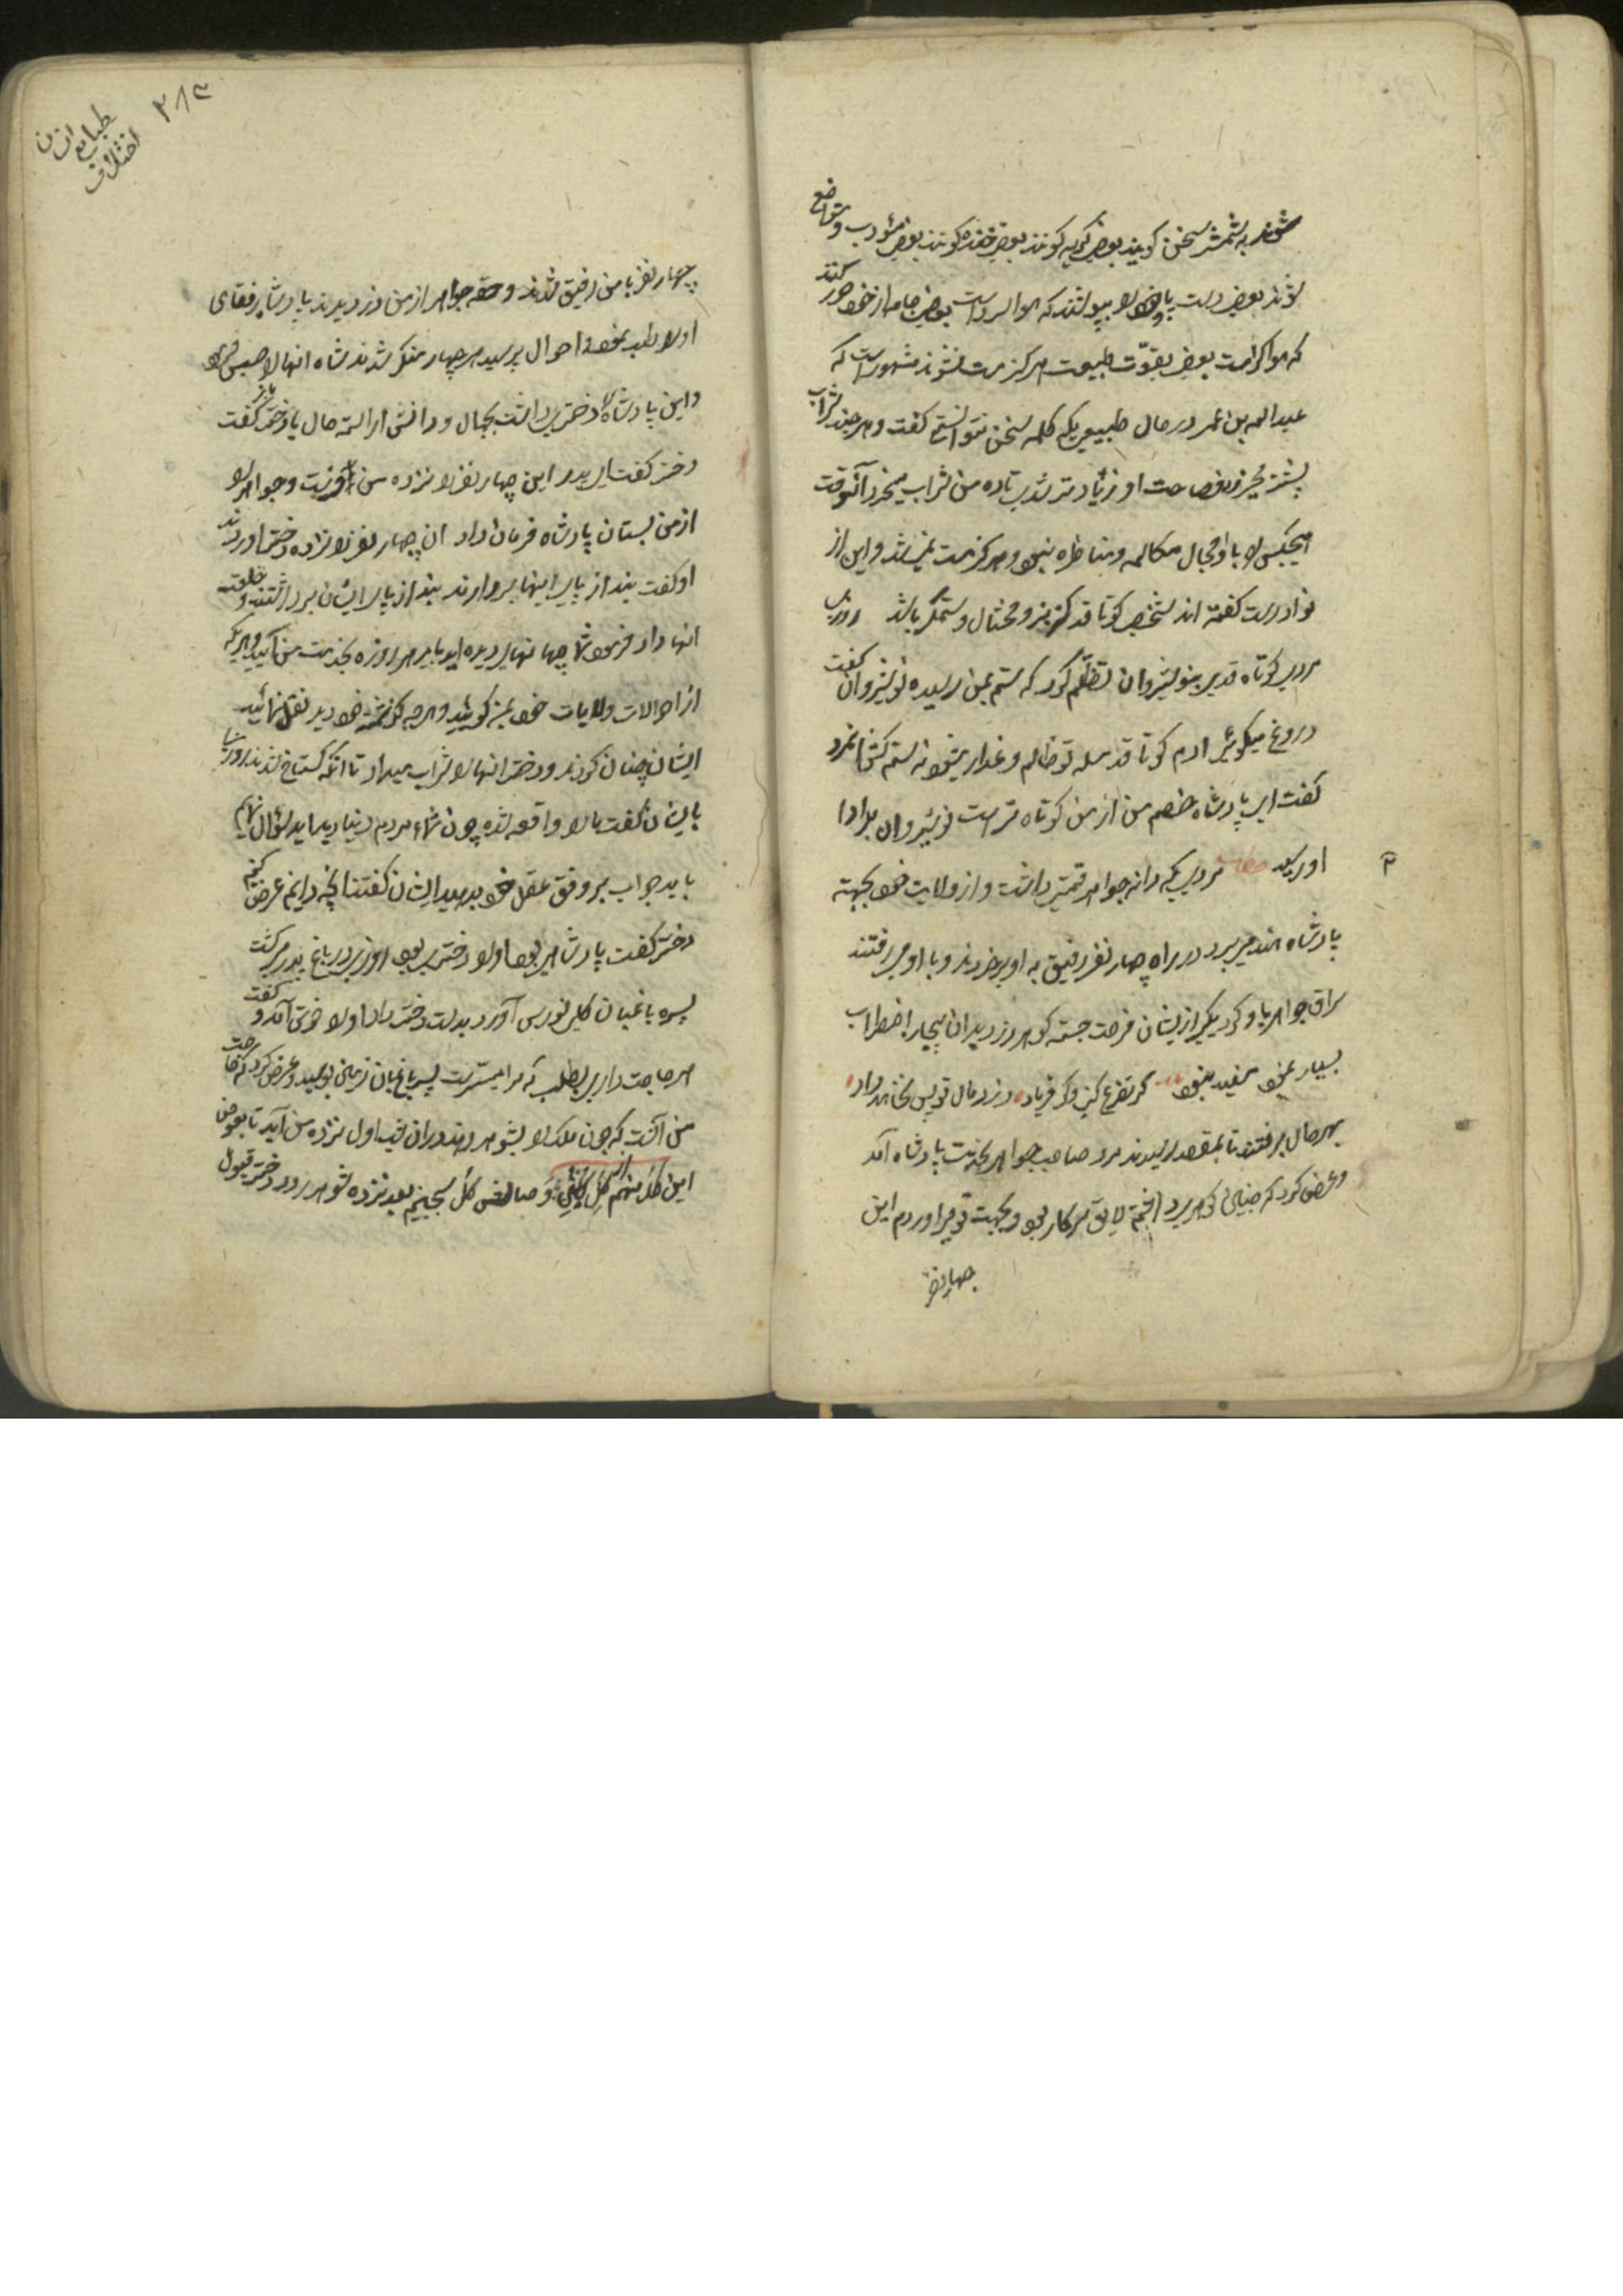 شوند به شمشیر سخن گویند بعضی گریه کنند بعضی خنده کنند بعضی مؤدب و متواضع
شوند بعضی دست و پای خود را بپوشند که هوا سرد است بعضی جامه از خود دور کنند
که هوا گرمست بعضی بقوّت طبیعت هرگز مست نشوند مشهور است که
عبدالله بن عمر در حال طبیعی یک کلمه سخن نتوانستی گفت و هر چند شراب
بیشتر میخورد فصاحت او زیاده تر شدی تا ده من شراب میخورد آنوقت
هیچکس را با او مجال مکالمه و مناظره نبود و هرگز مست نمیشد و این از
نوادرست گفته اند شخص کوتاه قد گربز و محتال و ستمگر باشد روزی
مردی کوتاه قدی بنوشیروان تظلّم کرد که ستم بمن رسیده نوشیروان گفت
دروغ میگوئی ادم کوتاه قد حیله تو ظالم و غدار میشود نه ستم کش انمرد
گفت ای پادشاه خصم من از من کوتاه تر است نوشیروان بداد
او رسید حکایت مردی یکدانه جواهر قیمتی داشت و از ولایت خود بجهته
پادشاه هند میبرد در راه چهار نفر رفیق به او برخوردند و با او میرفتند
سراق جواهر با او کرد یکی از ایشان فرصت جسته گوهر دزدید ان بیچاره اضطراب
بسیار نمود مفید نبود گر تضرع کنی و گر فریاد دزد مال تو پس نخواهد داد
بهر حال برفتند تا بمقصد رسیدند مرد صاحب جواهر بخدمت پادشاه آمد
و عرض کرد که چنین گوهری داشتم لایق سرکار بود و بجهت تو میاوردم این
چهار نفر
۲۸۳
اختلاف
طبایع انسان
چهار نفر با من رفیق شدند و حقه جواهر از من دزدیدند پادشاه رفقای
او را طلب نمود و احوال پرسید هر چهار منکر شدند شاه انها را حبس فرمود
و این پادشاه را دختری داشت بجمال و دانش اراسته حال با دختر باز گفت
دختر گفت ای پدر این چهار نفر را نزد من بفرست و جواهر را
از من بستان پادشاه فرمان داد ان چهار نفر را نزد دختر اوردند
او گفت بند از پای اینها بردارند بند از پای ایشان برداشتند و خلعت
انها داد فرمود شما جهانها دیده اید باید هر روزه بخدمت من آئید و هر یک
از احوالات ولایات خود بمن گوئید و هرچه گذشته خود دید نقل نمائید
ایشان چنان کردند و دختر انها را شراب میداد تا انکه گستاخ شدند روزی
بایشان گفت ما را واقعه شده چون شما مردم دنیا دیده اید سؤال نمایم
باید جواب بر وفق عقل خود بدهید ایشان گفتند انچه دانیم عرض کنیم
دختر گفت پادشاهی بود او را دختری بود روزی در باغ پدر میگشت
پسره باغبان گلی نورس آورد بدست دختر داد او را خوش آمد و گفت
هر حاجت داری بطلب که مرا میسرست پسر باغبان زمین بوسید و عرض کرد که حاجت
من آنست که چون ملک را بشوهر دهند در ان شب اول نزد من آید تا بعوض
این گل منهم گل و صالش گل بچینم بعد نزد شوهر رود دختر قبول